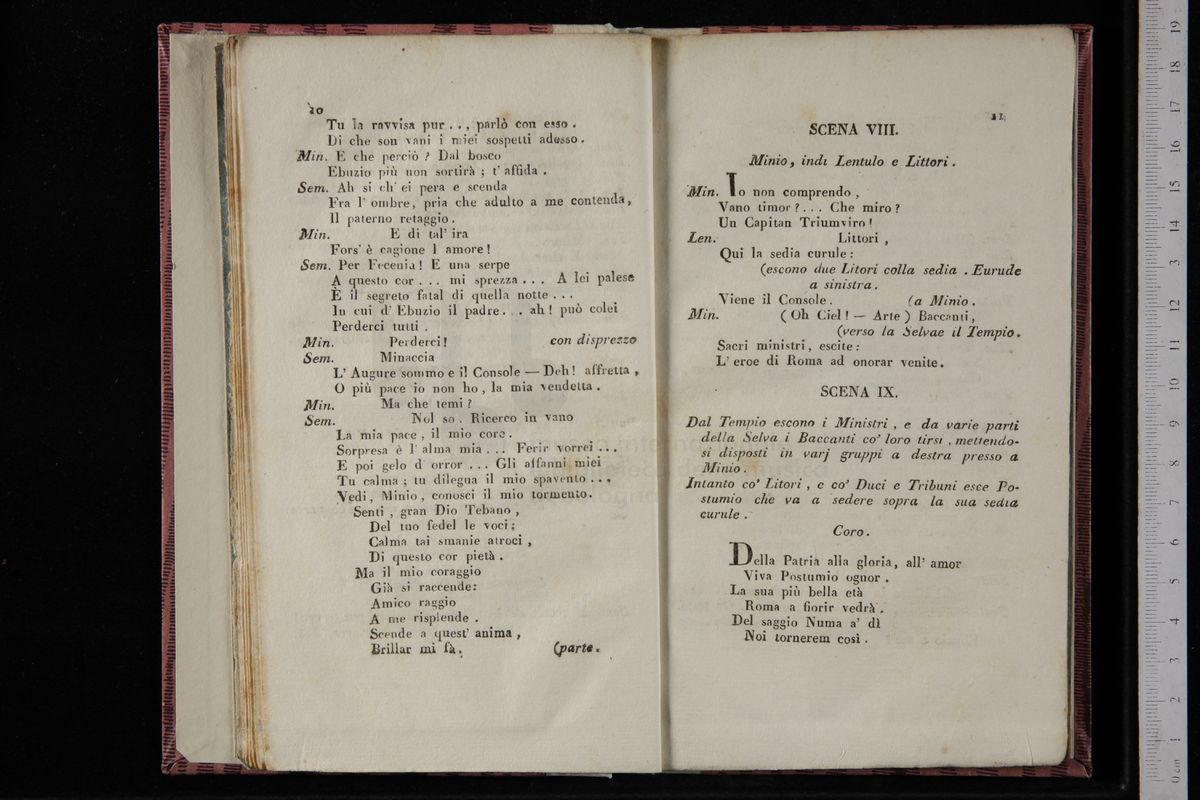 20
Tu la ravvisa pur . . , parlò con esso .
Di che son vani i miei sospetti adesso .
Min. E che perciò ? Dal bosco
Ebuzio più non sortirà ; t' affida .
Sem. Ah si ch' ei pera e scenda
Fra l' ombre, pria che adulto a me contenda,
Il paterno retaggio .
Min. E di tal' ira
Fors' è cagione l amore !
Sem. Per Fecenia ! E una serpe
A questo cor . . . mi sprezza . . . A lei palese
È il segreto fatal di quella notte . . .
In cui d' Ebuzio il padre . . . ah ! può colei
Perderci tutti .
Min. Perderci ! con disprezzo
Sem. Minaccia
L' Augure sommo e il Console — Deh ! affretta ,
O più pace io non ho , la mia vendetta .
Min. Ma che temi ?
Sem. Nol so . Ricerco in vano
La mia pace , il mio core .
Sorpresa è l' alma mia . . . Ferir vorrei . . .
E poi gelo d' orror . . . Gli affanni miei
Tu calma ; tu dilegua il mio spavento . . .
Vedi , Minio , conosci il mio tormento .
Senti , gran Dio Tebano ,
Del tuo fedel le voci ;
Calma tai smanie atroci ,
Di questo cor pietà .
Ma il mio coraggio
Già si raccende :
Amico raggio
A me risplende .
Scende a quest' anima ,
Brillar mi fà . (parte .
21
SCENA VIII.
Minio , indi Lentulo e Littori .
Min. Io non comprendo ,
Vano timor ? . . . Che miro ?
Un Capitan Triumviro !
Len. Littori ,
Qui la sedia curule :
(escono due Litori colla sedia . Eurude
a sinistra .
Viene il Console . (a Minio .
Min. ( Oh Ciel ! — Arte ) Baccanti ,
(verso la Selvae il Tempio .
Sacri ministri , escite :
L' eroe di Roma ad onorar venite .
SCENA IX.
Dal Tempio escono i Ministri , e da varie parti
della Selva i Baccanti co' loro tirsi , mettendo-
si disposti in varj gruppi a destra presso a
Minio .
Intanto co' Litori , e co' Duci e Tribuni esce Po-
stumio che va a sedere sopra la sua sedia
curule .
Coro .
Della Patria alla gloria , all' amor
Viva Postumio ognor .
La sua più bella età
Roma a fiorir vedrà .
Del saggio Numa a' dì
Noi tornerem così .